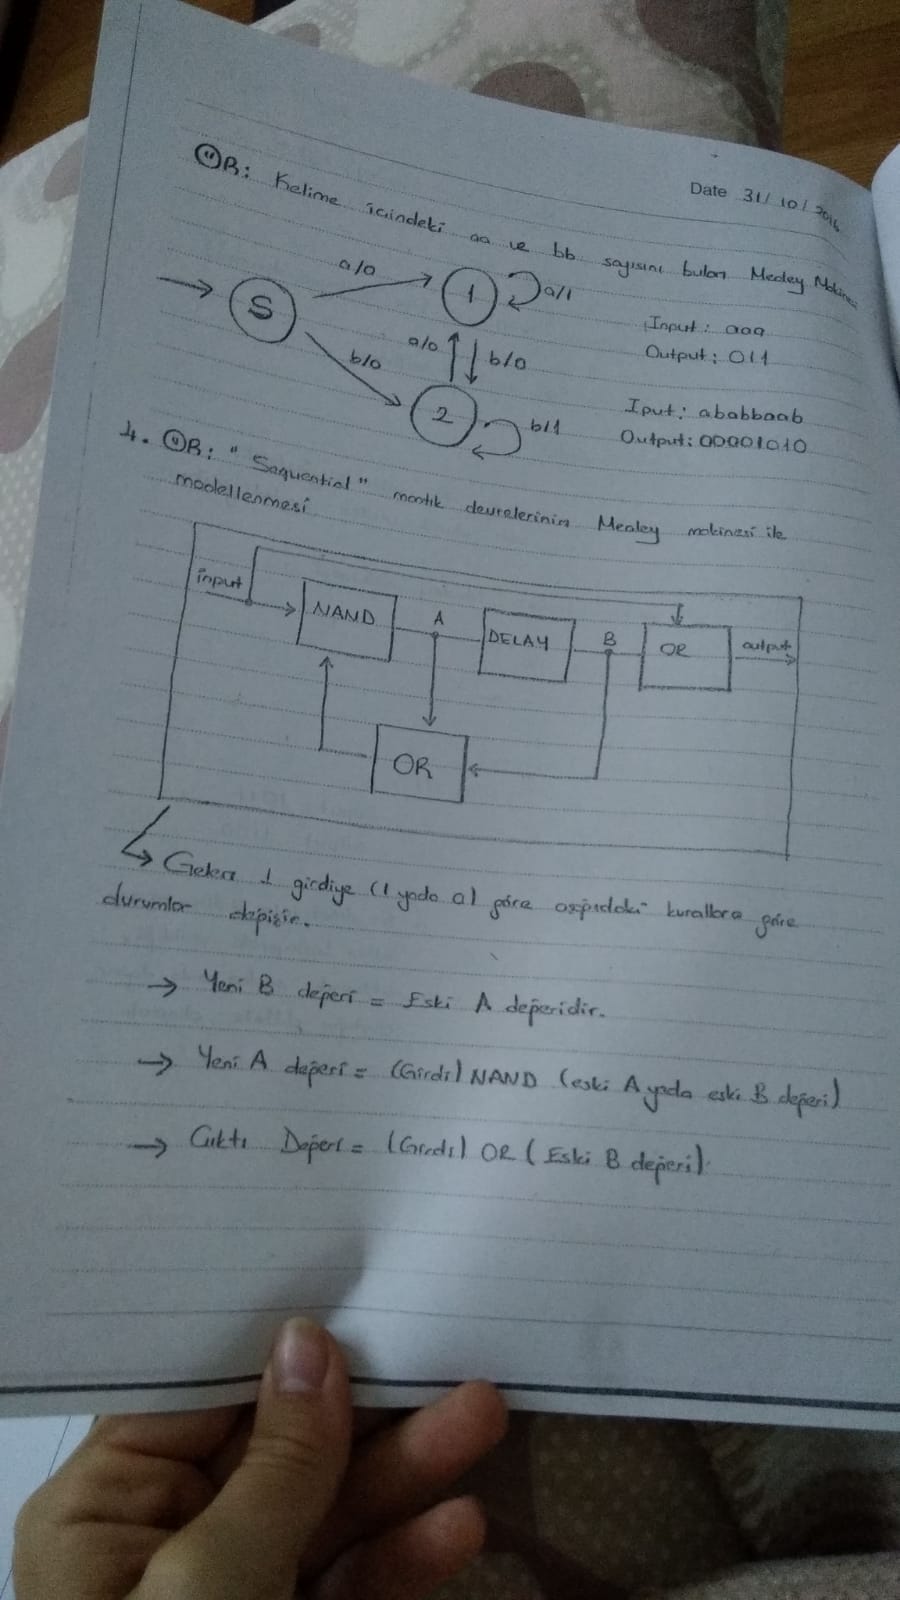 Date 31/10/2016
ÖR: Kelime içindeki aa ve bb sayısını bulan Mealey Makinesi
a/0
S
1
a/1
a/0
b/0
b/0
2
b/1
Input: aaa
Output: 011
Iput: ababbaab
Output: 00001010
4. ÖR: "Sequential" mantık devrelerinin Mealey makinesi ile
modellenmesi
input
NAND
A
DELAY
B
OR
output
OR
Gelen 1 girdiye (1 yada 0) göre aşağıdaki kurallara göre
durumlar değişir.
→ Yeni B değeri = Eski A değeridir.
→ Yeni A değeri = (Girdi) NAND (eski A yada eski B değeri)
→ Çıktı Değeri = (Girdi) OR (Eski B değeri)